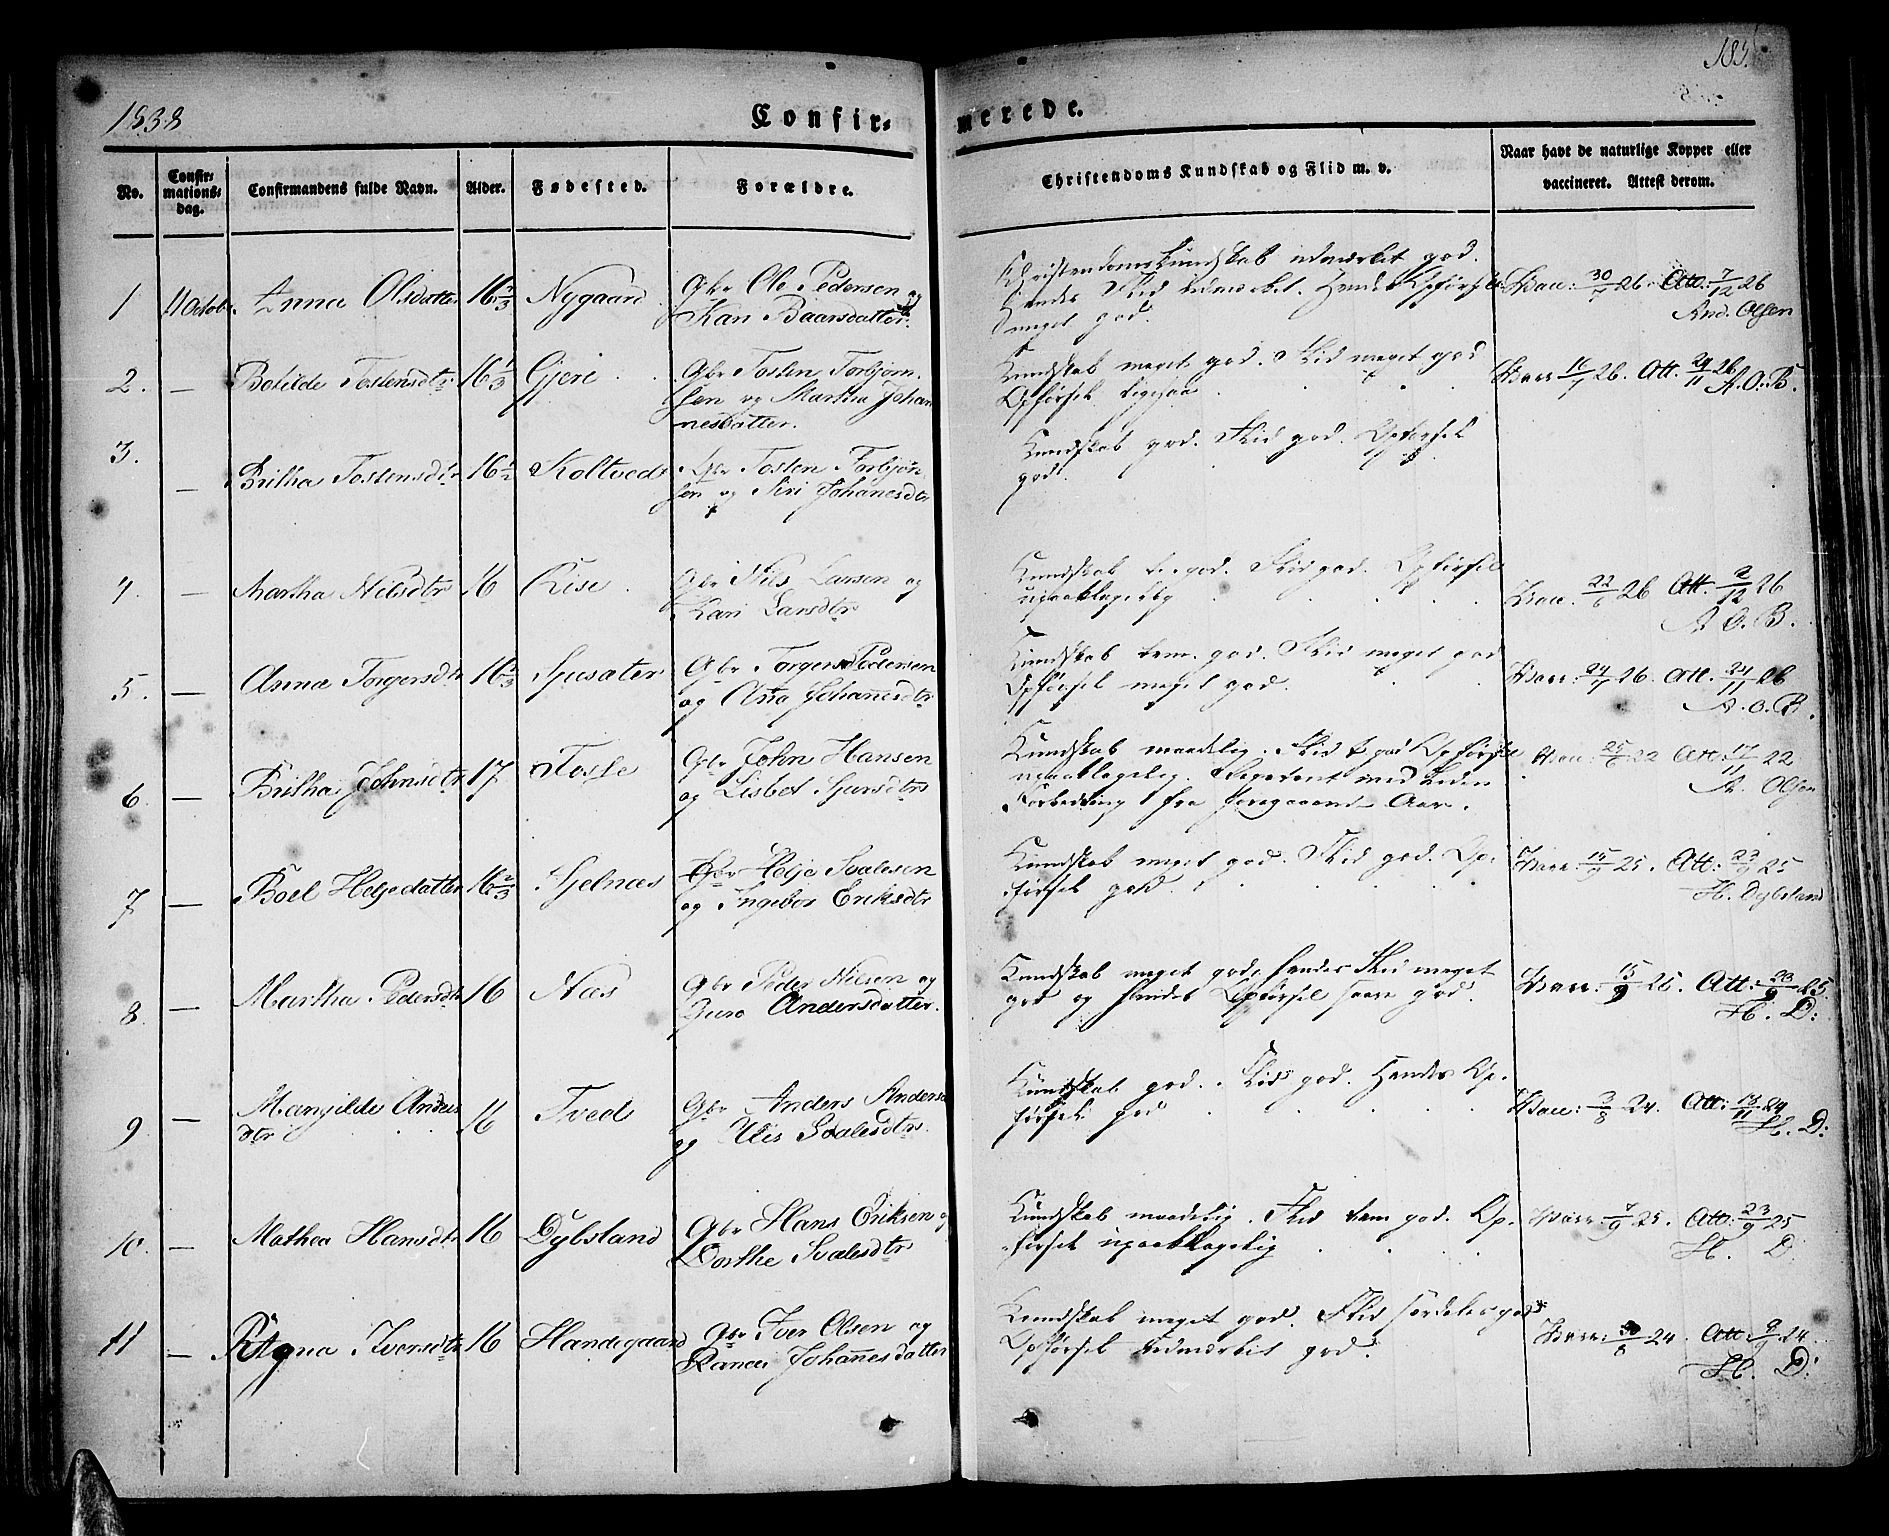 1838
Confir- merede.
185
No.
Confir-
mations-
dag.
Confirmandens fulde Navn.
Alder.
Fødested.
Forældre.
Christendoms Kundskab og Flid m. v.
Naar havt de naturlige Kopper eller
vaccineret. Attest derom.
1 11 Octob. Anna Olsdatter 16 2/3 Nygaard Gbr Ole Pedersen og
Kari Baarsdatter.
Christendomskundskab udmærket god.
Hendes Flid udmærket. Hendes Opførsel
meget god.
Vacc: 30/7 26. Att: 7/12 26
And. Olsen
2. — Botilde Tostensdtr 16 1/3 Gjere Gbr Tosten Torbjørn-
sen og Martha Johan
nesdatter.
Kundskab meget god. Flid meget god
Opførsel ligesaa
Vacc 16/7 26. Att. 29/11 26
A. O. B.
3. — Britha Tostensdtr 16 1/2 Koltved Gbr Tosten Torbjørn
sen og Siri Johanesdtr
Kundskab god. Flid god. Opførsel
god.
4. — Martha Nilsdtr 16 Rise Gbr Nils Larsen og
Kari Larsdtr
Kundskab t. god. Flid god. Opførsel
upaaklagelig
Vacc. 22/6 26 Att. 2/12 26
A. O. B.
5. — Anna Torgersdtr 16 2/3 Sjusæter Gbr Torgers Pedersen
og Anna Johannesdtr
Kundskab tem. god. Flid meget god
Opførsel meget god.
Vacc: 24/7 26. Att. 24/11 26
A. O. B.
6. — Britha Johnsdtr 17 Tosse Gbr John Hansen
og Lisbet Sjursdtr
Kundskab maadelig. Flid t. god Opførsel
upaaklagelig.
fra foregaaende Aar.
Vacc: 25/6 22 Att: 17/11 22
A. Olsen
7 — Boel Helgedatter 16 2/3 Fjelnæs Gbr Helje Svalesen
og Ingebor Eriksdtr
Kundskab meget god. Flid god. Op-
førsel god.
Vacc: 15/9 25. Att: 23/9 25
H. Dybsland
8. — Martha Pedersdtr 16 Næs Gbr Peder Nilsen og
Guro Andersdatter.
Kundskab meget god, hendes Flid meget
god og hendes Opførsel saare god.
Vacc: 15/9 25. Att: 23/9 25
H. D:
9 — Mangilde Anders
dtr 16 Tved Gbr Anders Anders
og Svalesdtr
Kundskab god. Flid god. Hendes Op-
førsel god
Vacc: 3/8 24. Att: 13/11 24
H. D:
10. — Mathea Hansdtr 16 Dybsland Gbr Hans Eriksen og
Dorthe Svalesdtr
Kundskab maadelig. Flid tem god. Op-
førsel upaaklagelig
Vacc: 7/9 25. Att: 23/9 25
H. D
11 — Ragna Iversdtr 16 Handegaard Gbr Iver Olsen og
Ranei Johannesdatter
Kundskab meget god. Flid særdeles god
Opførsel udmærket god.
Vacc: 30/8 24. Att: 9/9 24.
H. D: